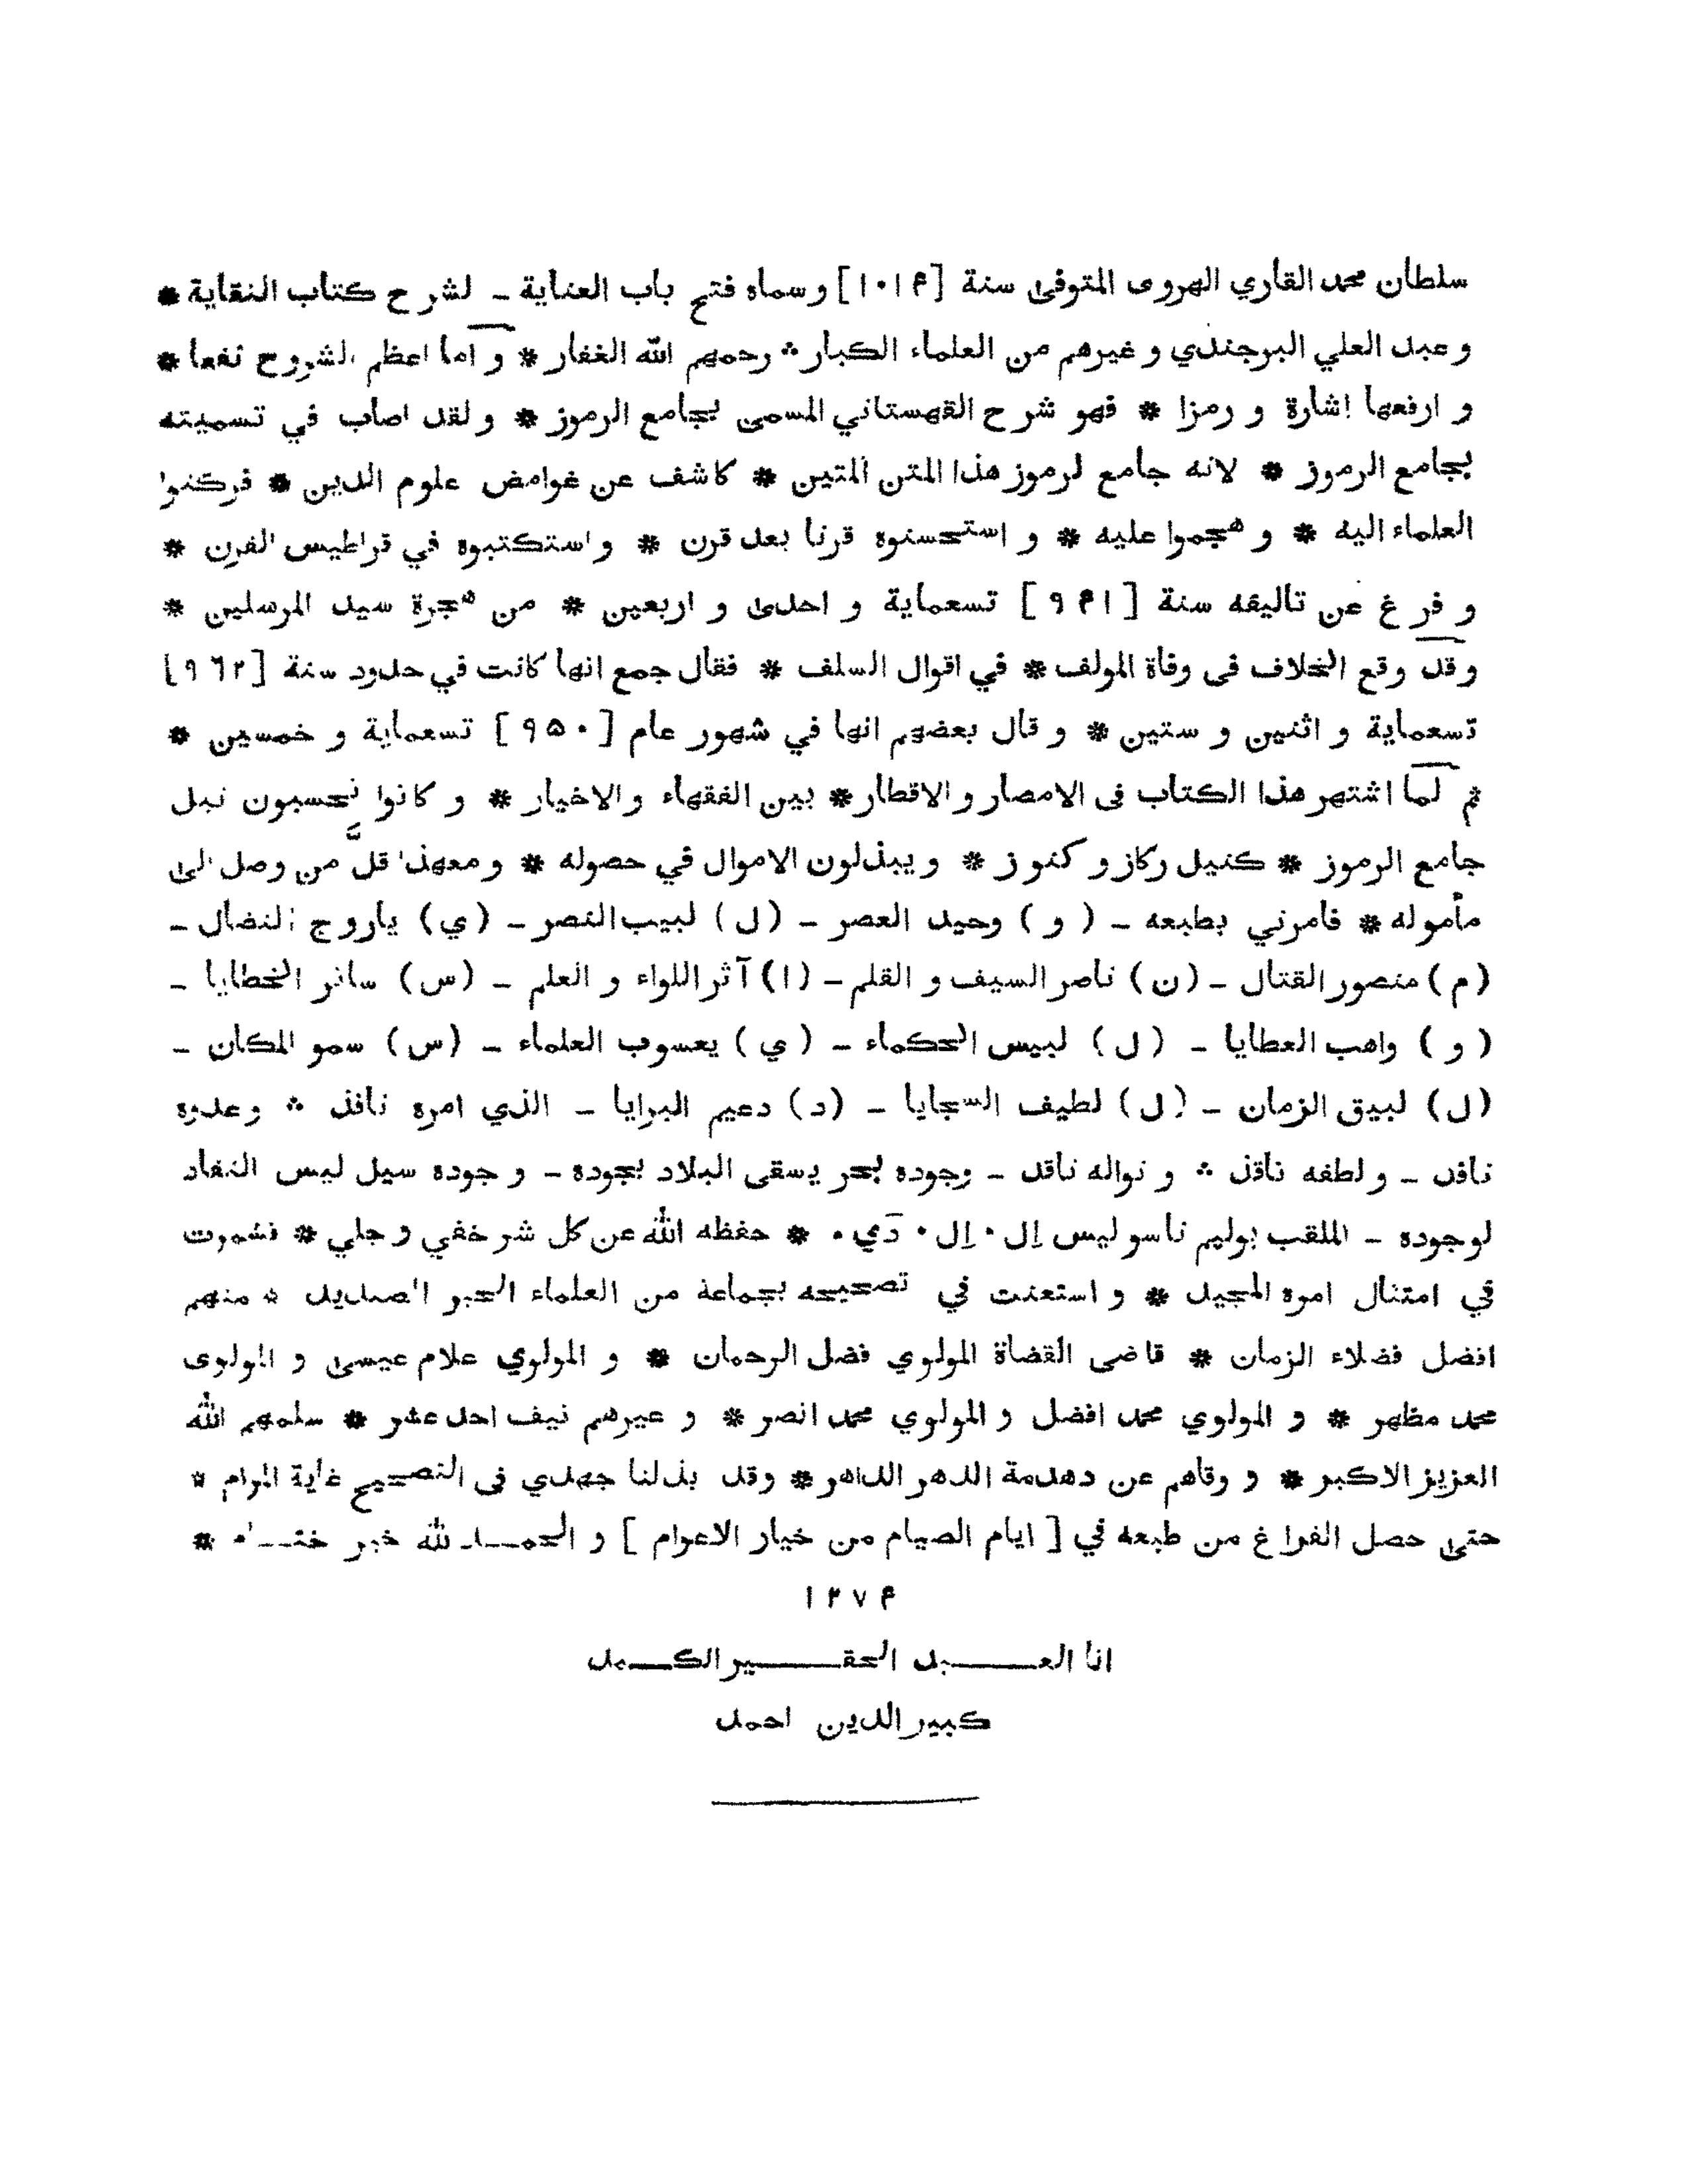 سلطان محمد القاري الهروى المتوفى سنة [۱۰۱۴] وسماه فتح باب العناية ـ لشرح كتاب النقاية *
وعبد العلي البرجندي وغيرهم من العلماء الكبار ∴ رحمهم الله الغفار * و اما اعظم الشروح نفعا *
و ارفعها اشارة و رمزا * فهو شرح القهستاني المسمى بجامع الرموز * ولقد اصاب في تسميته
بجامع الرموز * لانه جامع لرموز هذا المتن المتين * كاشف عن غوامض علوم الدين * فركنوا
العلماء اليه * و هجموا عليه * و استحسنوه قرنا بعد قرن * واستكتبوه في قراطيس الفرن *
و فرغ عن تاليفه سنة [۹۴۱] تسعماية و احدى و اربعين * من هجرة سيد المرسلين *
وقد وقع الخلاف فى وفاة المولف * في اقوال السلف * فقال جمع انها كانت في حدود سنة [۹۶۲]
تسعماية و اثنين و ستين * و قال بعضهم انها في شهور عام [۹۵۰] تسعماية و خمسين *
ثم لما اشتهر هذا الكتاب فى الامصار والاقطار * بين الفقهاء والاخيار * و كانوا نحسبون نيل
جامع الرموز * كنيل ركاز و كنوز * ويبذلون الاموال في حصوله * ومعهذا قلَّ من وصل الى
مأموله * فامرني بطبعه ـ (و) وحيد العصر ـ (ل) لبيب النصر ـ (ي) ياروج النضال ـ
(م) منصور القتال ـ (ن) ناصر السيف و القلم ـ (ا) آثر اللواء و العلم ـ (س) ساتر الخطايا ـ
(و) واهب العطايا ـ (ل) لبيس الحكماء ـ (ي) يعسوب العلماء ـ (س) سمو المكان ـ
(ل) لبيق الزمان ـ (ل) لطيف السجايا ـ (د) دعيم البرايا ـ الذي امره نافذ ∴ وعدوه
نافد ـ ولطفه ناقذ ∴ و نواله ناقد ـ وجوده بحر يسقى البلاد بجوده ـ و جوده سيل ليس النفاد
لوجوده ـ الملقب بوليم ناسو ليس اِل٠ اِل٠ دي٠ * حفظه الله عن كل شر خفي و جلي * فشمرت
في امتثال امره المجيد * و استعنت في تصحيحه بجماعة من العلماء الحبر الصنديد * منهم
افضل فضلاء الزمان * قاضى القضاة المولوي فضل الرحمان * و المولوي غلام عيسى و المولوى
محمد مظهر * و المولوي محمد افضل و المولوي محمد انصر * و غيرهم نيف احد عشر * سلمهم الله
العزيز الاكبر * و وقاهم عن دهدمة الدهر الداهر * وقد بذلنا جهدي فى التصحيح غاية المرام *
حتى حصل الفراغ من طبعه في [ايام الصيام من خيار الاعوام] و الحمد لله خير ختام *
۱۲۷۴
انا العبد الحقير الكمد
كبير الدين احمد